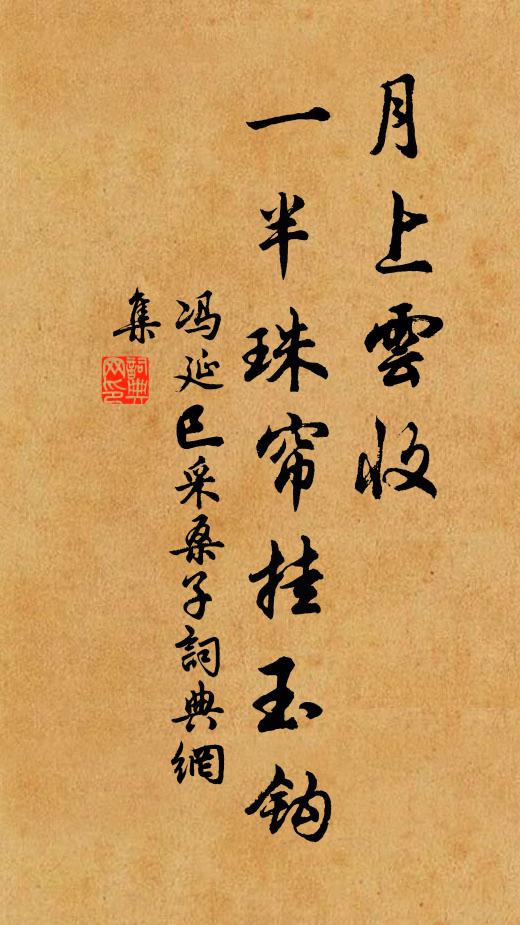 月上雲收
一半珠帘挂玉鈎
冯延巳采桑子詞典網
集
詞典
网印